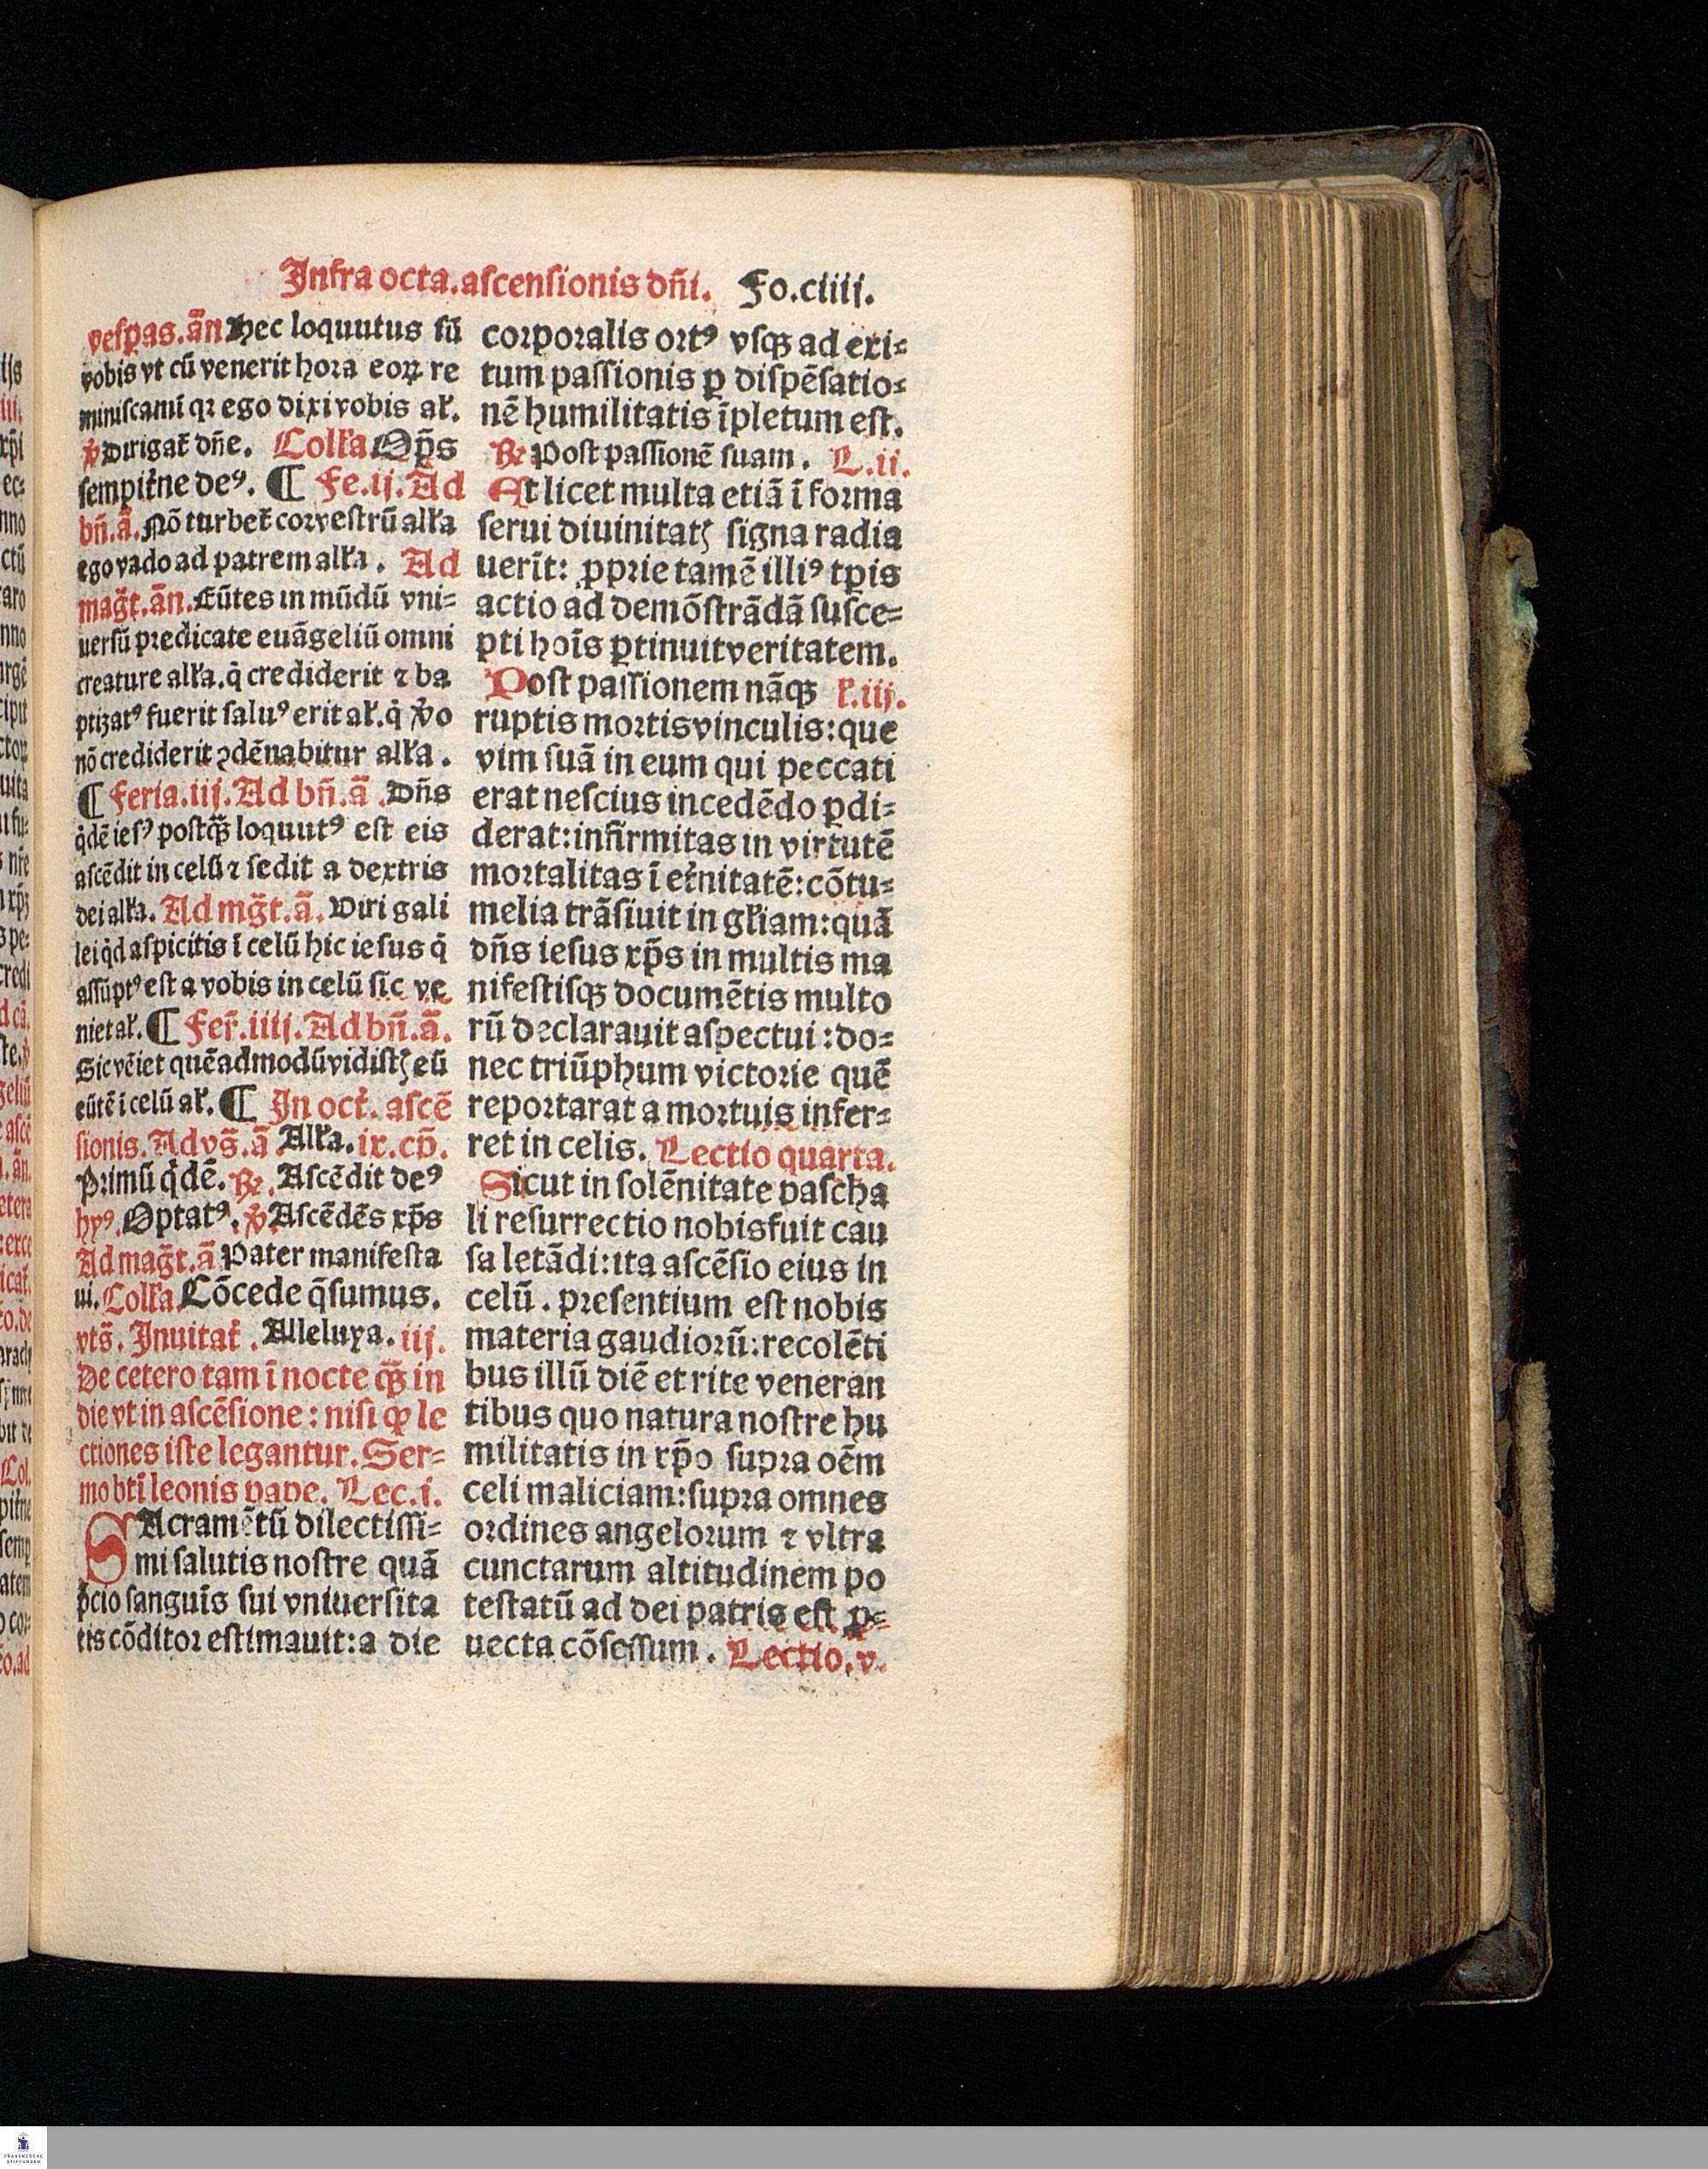 Infra octa.ascensionis dñi. Fo.ciiij.
vespas.ān Hec loquutus sū
vobis vt cū venerit hora eoꝝ re
miniscamī qꝛ ego dixi vobis ał.
℣ Dirigat̄ dñe. Colł̄a Op̄s
sempit̄ne deꝰ. ¶ Fe.ij. Ad
bñ.ā. Nō turbet̄ cor vestrū ałł̄a
ego vado ad patrem ałł̄a. Ad
mag̃t.ān. Eūtes in mūdū vni⸗
uersū predicate euāgeliū omni
creature ałł̄a. q̇ crediderit ⁊ ba
ptizatꝰ fuerit saluꝰ erit ał. q̇ v̊o
nō crediderit ꝯdēnabitur ałł̄a.
¶ Feria.iij. Ad bñ.ā. Dñs
q̇dē iesꝰ postq̄ꝫ loquutꝰ est eis
ascēdit in celū ⁊ sedit a dextris
dei ałł̄a. Ad mg̃t.ā. Viri gali
lei q̇d aspicitis ī celū hic iesus q̇
assūptꝰ est a vobis in celū sic ve
niet ał. ¶ Fer̄.iiij. Ad bñ.ā.
Sic vēiet quēadmodū vidistꝭ eū
eūtē ī celū ał. ¶ In oct̄. ascē
sionis. Ad vs̄.ā Ałł̄a. ix.cp̄.
Primū q̇dē. ℞. Ascēdit deꝰ
hyꝰ. Optatꝰ. ℣ Ascēdēs xp̄s
Ad mag̃t.ā Pater manifesta
ui. Colł̄a Cōcede q̄sumus.
vts̄. Inuitat̄. Alleluya. iij.
De cetero tam ī nocte q̄ꝫ in
die vt in ascēsione: nisi ꝙ le
ctiones iste legantur. Ser⸗
mo btī leonis pape. Lec.i.
SAcramētū dilectissi⸗
mi salutis nostre quā
p̄cio sanguīs sui vniuersita
tis cōditor estimauit: a die
corporalis ortꝰ vsqꝫ ad exi⸗
tum passionis ꝑ dispēsatio⸗
nē humilitatis īpletum est.
℞ Post passionē suam. L.ii.
Et licet multa etiā ī forma
serui diuinitatꝭ signa radia
uerīt: ꝓprie tamē illiꝰ tp̄is
actio ad demōstrādā susce⸗
pti hoīs ꝑtinuit veritatem.
Post passionem nāqꝫ ł.iij.
ruptis mortis vinculis: que
vim suā in eum qui peccati
erat nescius incedēdo ꝑdi⸗
derat: infirmitas in virtutē
mortalitas ī et̄nitatē: cōtu⸗
melia trāsiuit in gł̄iam: quā
dñs iesus xp̄s in multis ma
nifestisqꝫ documētis multo
rū declarauit aspectui: do⸗
nec triūphum victorie quē
reportarat a mortuis infer⸗
ret in celis. Lectio quarta.
Sicut in solēnitate pascha
li resurrectio nobis fuit cau
sa letādi: ita ascēsio eius in
celū. presentium est nobis
materia gaudiorū: recolēti
bus illū diē et rite veneran
tibus quo natura nostre hu
militatis in xp̄o supra oēm
celi maliciam: supra omnes
ordines angelorum ⁊ vltra
cunctarum altitudinem po
testatū ad dei patris est ꝓ⸗
uecta cōsessum. Lectio.v.
FRANCKESCHE
STIFTUNGEN